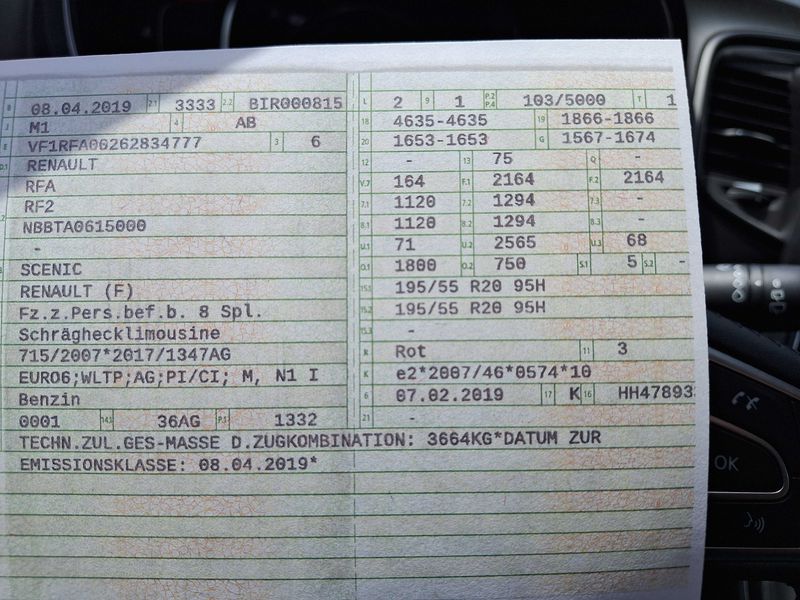 B 08.04.2019 2.1 3333 2.2 BIR000815
J M1 4 AB
E VF1RFA00262834777 3 6
D.1 RENAULT
RFA
RF2
D.2 NBBTA0615000
-
SCENIC
RENAULT (F)
Fz.z.Pers.bef.b. 8 Spl.
Schräghecklimousine
715/2007*2017/1347AG
EURO6;WLTP;AG;PI/CI; M, N1 I
Benzin
0001 14.1 36AG P.1 1332
L 2 9 1 P.2 P.4 103/5000 T 1
18 4635-4635 19 1866-1866
20 1653-1653 G 1567-1674
12 - 13 75 Q -
V.7 164 F.1 2164 F.2 2164
7.1 1120 7.2 1294 7.3 -
8.1 1120 8.2 1294 8.3 -
U.1 71 U.2 2565 U.3 68
O.1 1800 O.2 750 S.1 5 S.2 -
15.1 195/55 R20 95H
15.2 195/55 R20 95H
15.3 -
R Rot 11 3
K e2*2007/46*0574*10
6 07.02.2019 17 K 16 HH478933
21 -
TECHN.ZUL.GES-MASSE D.ZUGKOMBINATION: 3664KG*DATUM ZUR
EMISSIONSKLASSE: 08.04.2019*
OK